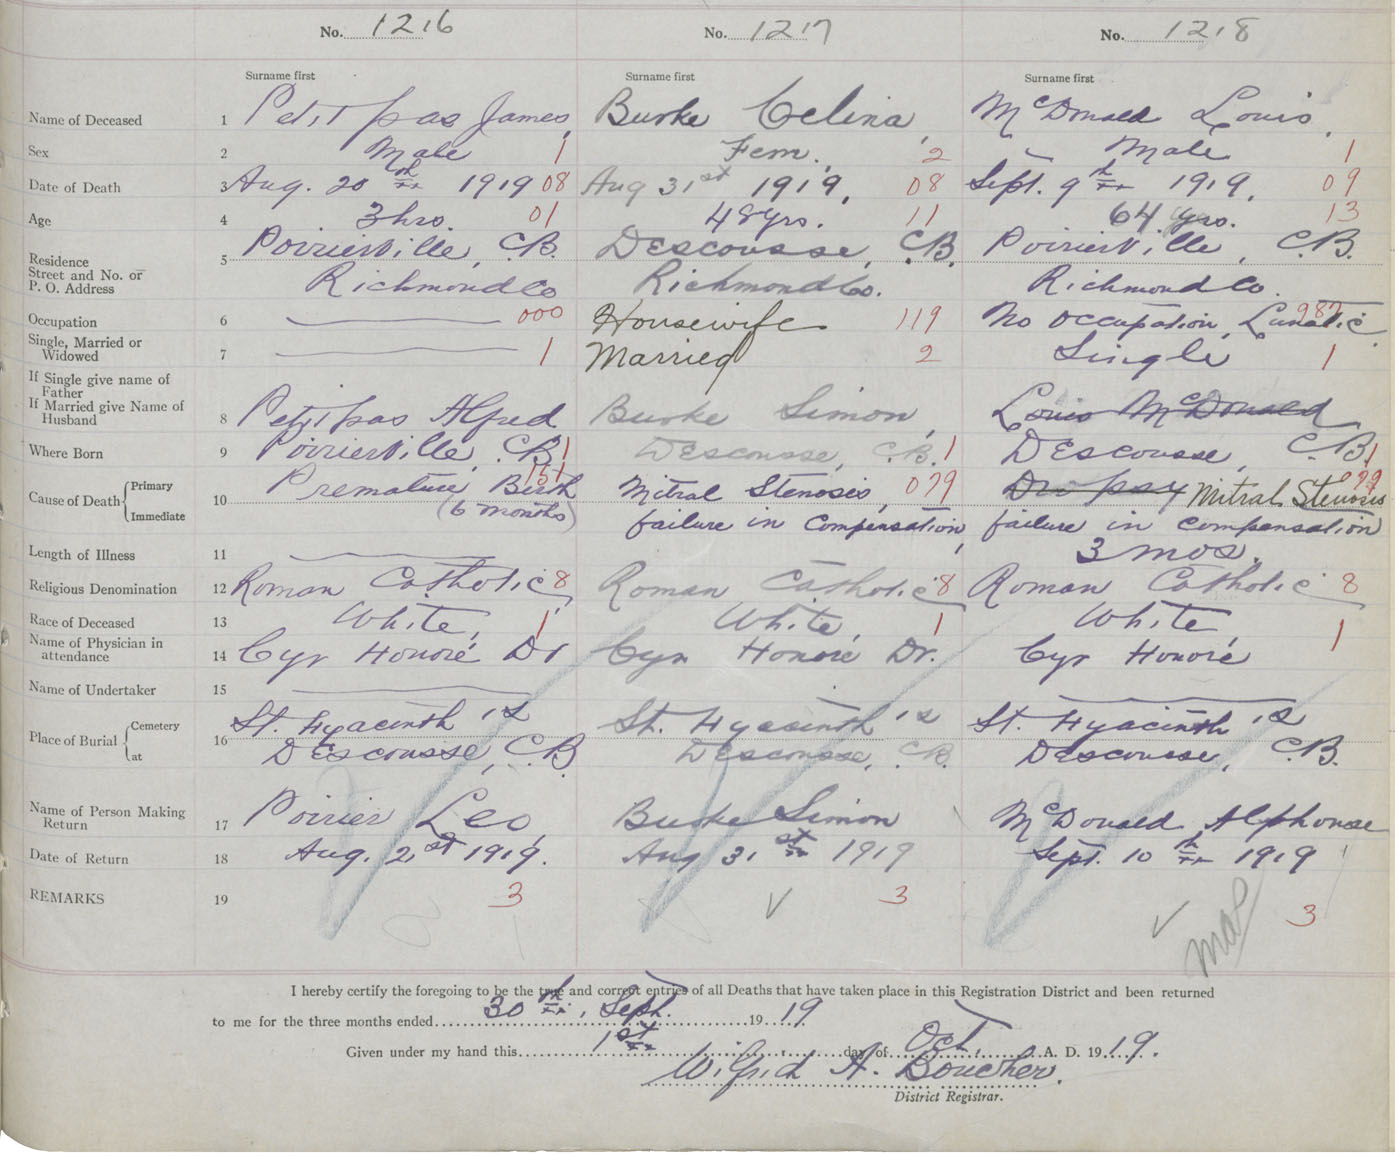 No. 1216 No. 1217 No. 1218
Surname first Surname first Surname first
Name of Deceased 1 Petitpas James, Burke Celina, McDonald Louis,
Sex 2 Male 1 Fem. 2 Male 1
Date of Death 3 Aug. 20th 1919 08 Aug 31st 1919, 08 Sept. 9th 1919, 09
Age 4 3 hrs. 01 48 yrs. 11 64 yrs. 13
Residence Street and No. or P. O. Address 5 Poirierville, C.B. Descousse, C.B. Poirierville, C.B.
Richmond Co Richmond Co. Richmond Co.
Occupation 6 000 Housewife 119 No occupation, Lunatic 987
Single, Married or Widowed 7 1 Married 2 Single 1
If Single give name of Father
If Married give Name of Husband 8 Petitpas Alfred Burke Simon, Louis McDonald
Where Born 9 Poirierville, C.B. 1 Descousse, C.B. 1 Descousse, C.B. 1
Cause of Death Primary Immediate 10 Premature Birth 151 Mitral Stenosis, 079 Dropsy Mitral Stenosis
(6 months) failure in compensation, failure in compensation
Length of Illness 11 3 mos.
Religious Denomination 12 Roman Catholic 8 Roman Catholic 8 Roman Catholic 8
Race of Deceased 13 White, 1 White, 1 White, 1
Name of Physician in attendance 14 Cyr Honoré Dr Cyr Honoré Dr. Cyr Honoré
Name of Undertaker 15
Place of Burial Cemetery at 16 St. Hyacinth's St. Hyacinth's St. Hyacinth's
Descousse, C.B. Descousse, C.B. Descousse, C.B.
Name of Person Making Return 17 Poirier Leo, Burke Simon McDonald Alphonse
Date of Return 18 Aug. 21st 1919. Aug 31st 1919 Sept. 10th 1919
REMARKS 19 3 3 3
I hereby certify the foregoing to be the true and correct entries of all Deaths that have taken place in this Registration District and been returned
to me for the three months ended 30th, Sept. 1919
Given under my hand this 1st day of Oct. A. D. 1919.
Wilfrid A. Boucher.
District Registrar.